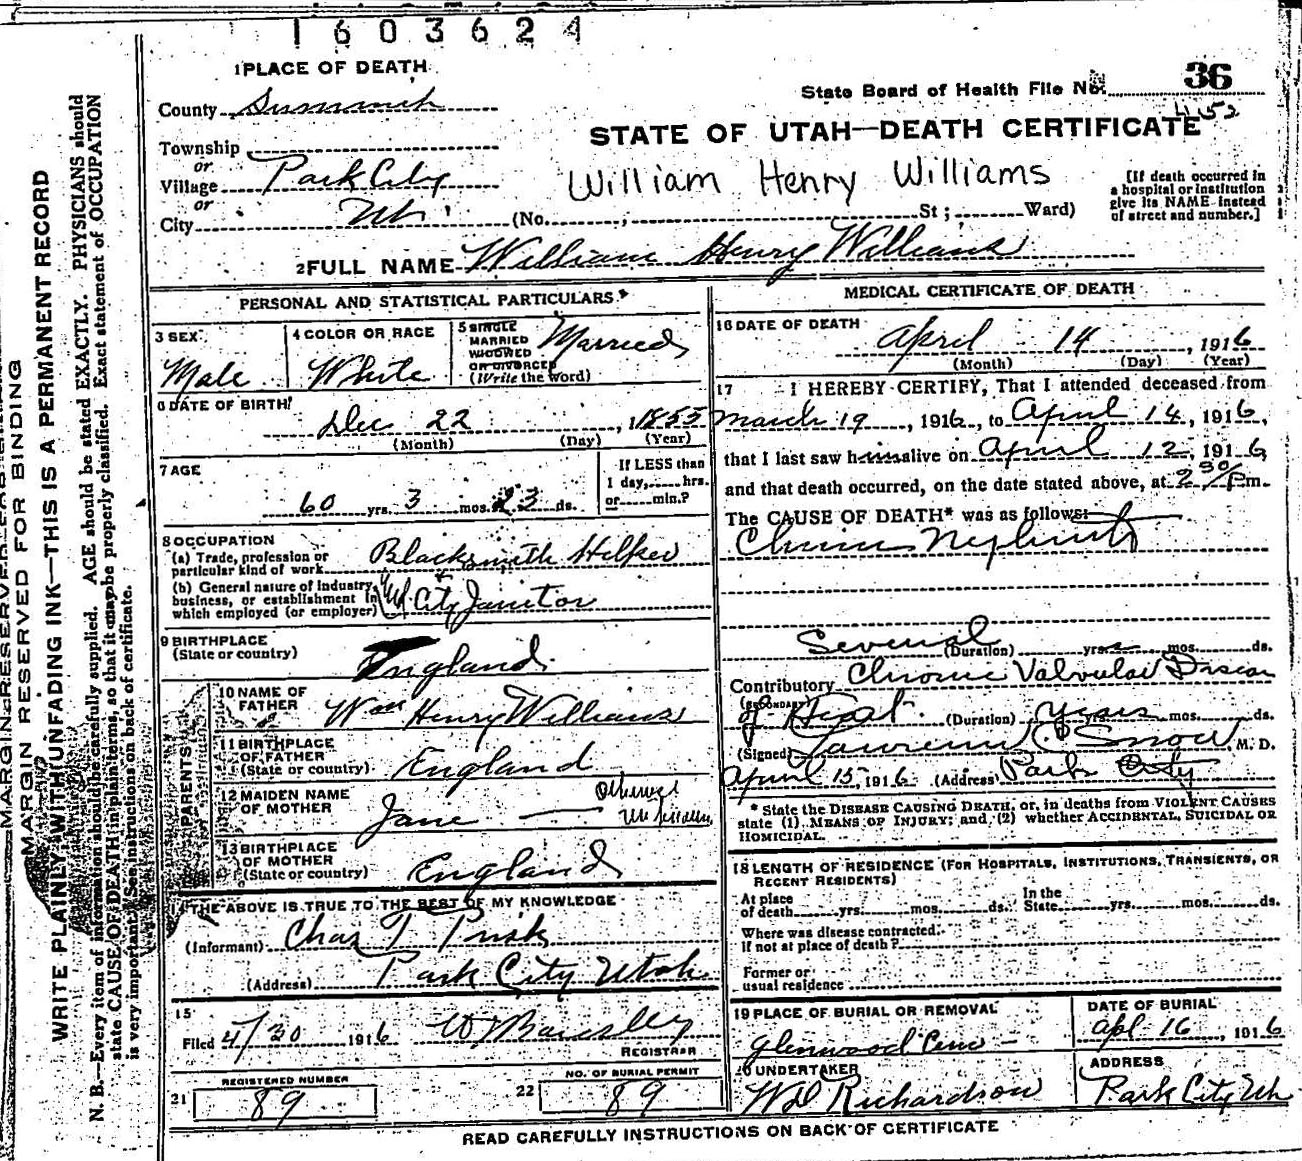 1603624
1 PLACE OF DEATH
County Summit
State Board of Health File No. 36
452
STATE OF UTAH—DEATH CERTIFICATE
Township
or
Village Park City
or
City Ut. (No. St ; Ward)
William Henry Williams
[If death occurred in
a hospital or institution
give its NAME instead
of street and number.]
2 FULL NAME William Henry Williams
PERSONAL AND STATISTICAL PARTICULARS
3 SEX
Male
4 COLOR OR RACE
White
5 SINGLE
MARRIED
WIDOWED
OR DIVORCED
(Write the word)
Married
6 DATE OF BIRTH
Dec 22, 1855
(Month) (Day) (Year)
7 AGE
60 yrs. 3 mos. 23 ds.
If LESS than
1 day, hrs.
or min.?
8 OCCUPATION
(a) Trade, profession or
particular kind of work Blacksmith Helper
(b) General nature of industry,
business, or establishment in
which employed (or employer) City Janitor
9 BIRTHPLACE
(State or country)
England
PARENTS
10 NAME OF
FATHER
Wm Henry Williams
11 BIRTHPLACE
OF FATHER
(State or country) England
12 MAIDEN NAME
OF MOTHER
Jane — Otherwise
Unknown
13 BIRTHPLACE
OF MOTHER
(State or country) England
THE ABOVE IS TRUE TO THE BEST OF MY KNOWLEDGE
(Informant) Chas T Prisk
(Address) Park City Utah
15
Filed 4/30 1916
REGISTRAR
21 REGISTERED NUMBER
89
22 NO. OF BURIAL PERMIT
89
MEDICAL CERTIFICATE OF DEATH
16 DATE OF DEATH
April 14, 1916
(Month) (Day) (Year)
17 I HEREBY CERTIFY, That I attended deceased from
March 19, 1916, to April 14, 1916,
that I last saw him alive on April 12, 1916,
and that death occurred, on the date stated above, at 2 30/ Pm.
The CAUSE OF DEATH* was as follows:
Chronic Nephritis
Several (Duration) yrs. mos. ds.
Contributory Chronic Valvular Disease
(SECONDARY)
of Heart. (Duration) years mos. ds.
(Signed) Lawrence C Snow M. D.
April 15, 1916 (Address) Park City
* State the DISEASE CAUSING DEATH, or, in deaths from VIOLENT CAUSES
state (1) MEANS OF INJURY; and (2) whether ACCIDENTAL, SUICIDAL OR
HOMICIDAL.
18 LENGTH OF RESIDENCE (FOR HOSPITALS, INSTITUTIONS, TRANSIENTS, OR
RECENT RESIDENTS)
At place
of death yrs. mos. ds.
In the
State yrs. mos. ds.
Where was disease contracted,
if not at place of death?
Former or
usual residence
19 PLACE OF BURIAL OR REMOVAL
Glenwood Cem —
DATE OF BURIAL
Apl 16, 1916
20 UNDERTAKER
WD Richardson
ADDRESS
Park City Ut
READ CAREFULLY INSTRUCTIONS ON BACK OF CERTIFICATE
MARGIN RESERVED FOR BINDING
WRITE PLAINLY WITH UNFADING INK—THIS IS A PERMANENT RECORD
N. B.—Every item of information should be carefully supplied. AGE should be stated EXACTLY. PHYSICIANS should
state CAUSE OF DEATH in plain terms, so that it may be properly classified. Exact statement of OCCUPATION
is very important. See instructions on back of certificate.